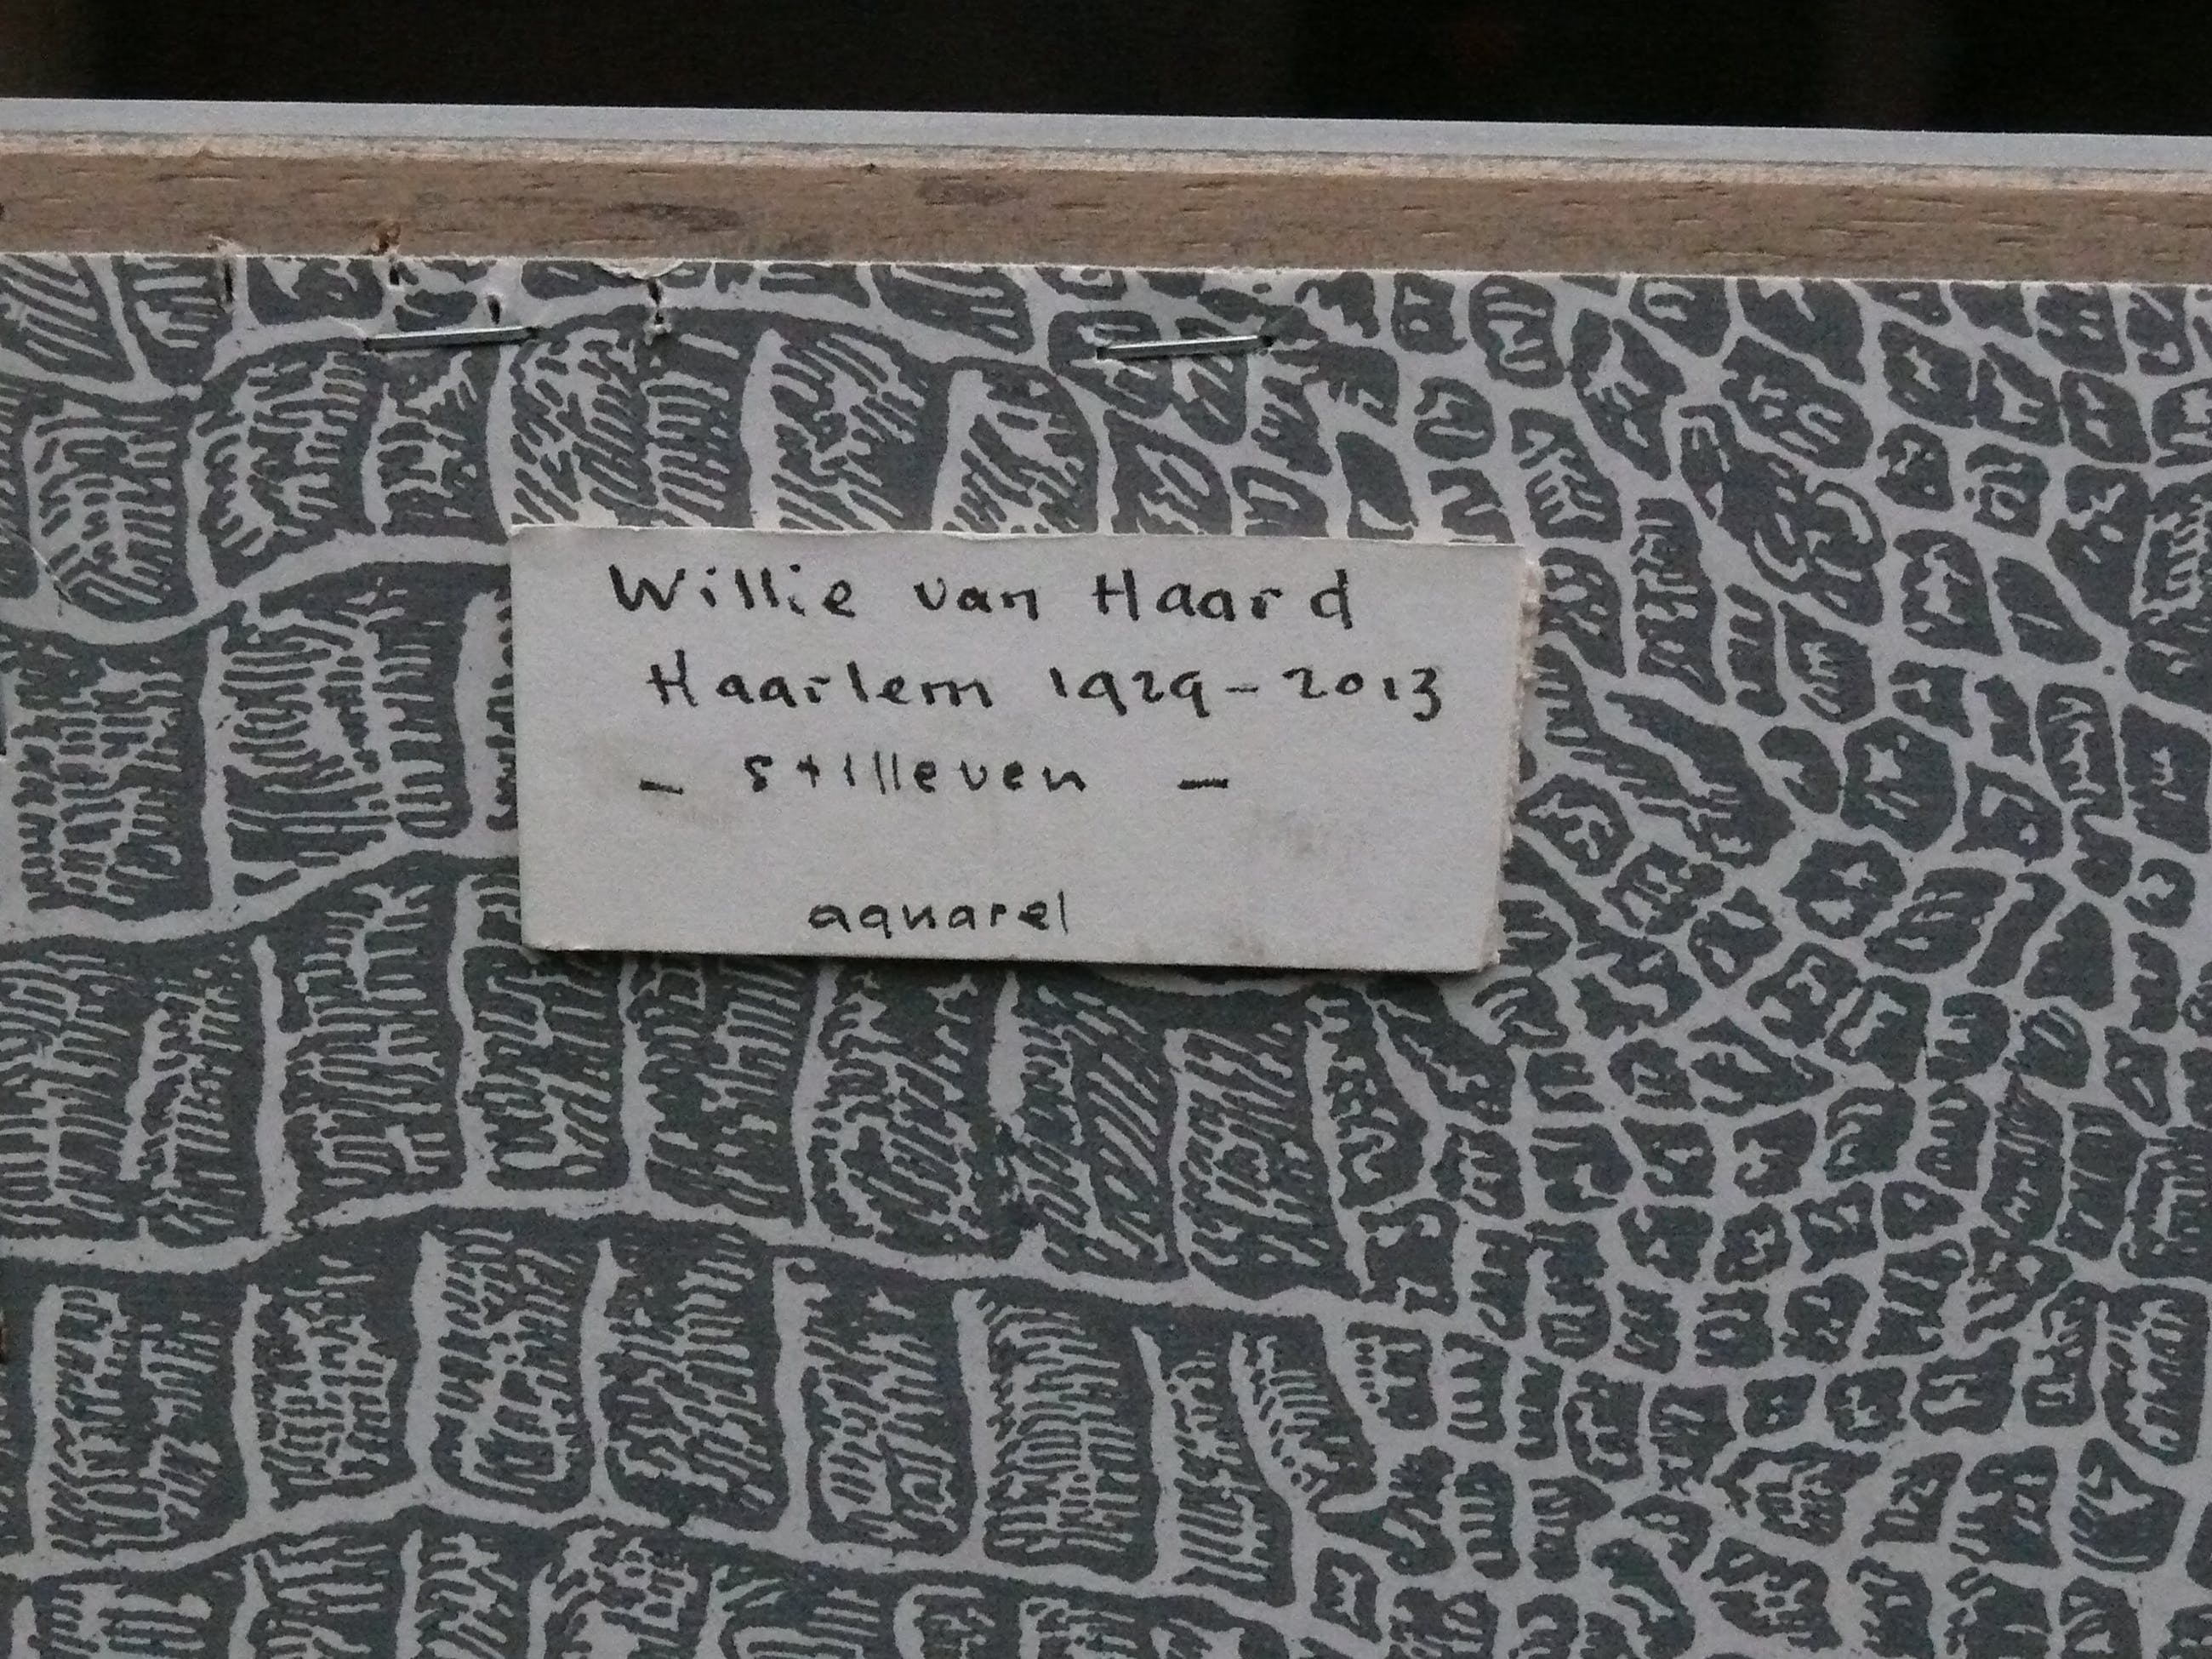 Willie van Haard
Haarlem 1929-2013
- stilleven -
aquarel